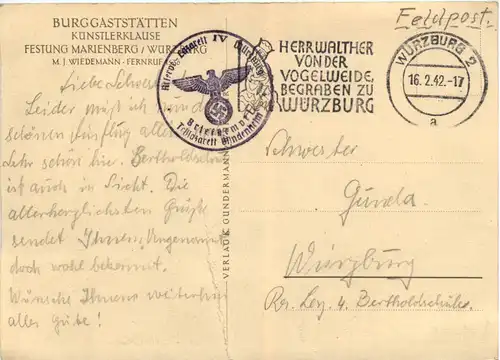 BURGGASTSTÄTTEN
KÜNSTLERKLAUSE
FESTUNG MARIENBERG / WÜRZBURG
M. J. WIEDEMANN - FERNRUF
Feldpost.
HERR WALTHER
VON DER
VOGELWEIDE,
BEGRABEN ZU
WÜRZBURG
WÜRZBURG 2
16.2.42.-17
a
Reserve-Lazarett IV Würzburg
Briefstempel
Teillazarett
Liebe Schwester
Leider muß ich
schönen Ausflug
Sehr schön hie. Bertholdschule
ist auch in Sicht. Die
allerherzlichsten Grüße
sendet Ihnen, Ungenannt
doch wohl bekannt.
Wünsche Ihnens weiterhin
alles Gute!
VERLAG K. GUNDERMANN
Schwester
Gunda.
Würzburg
Res. Laz. 4. Bertholdschule.